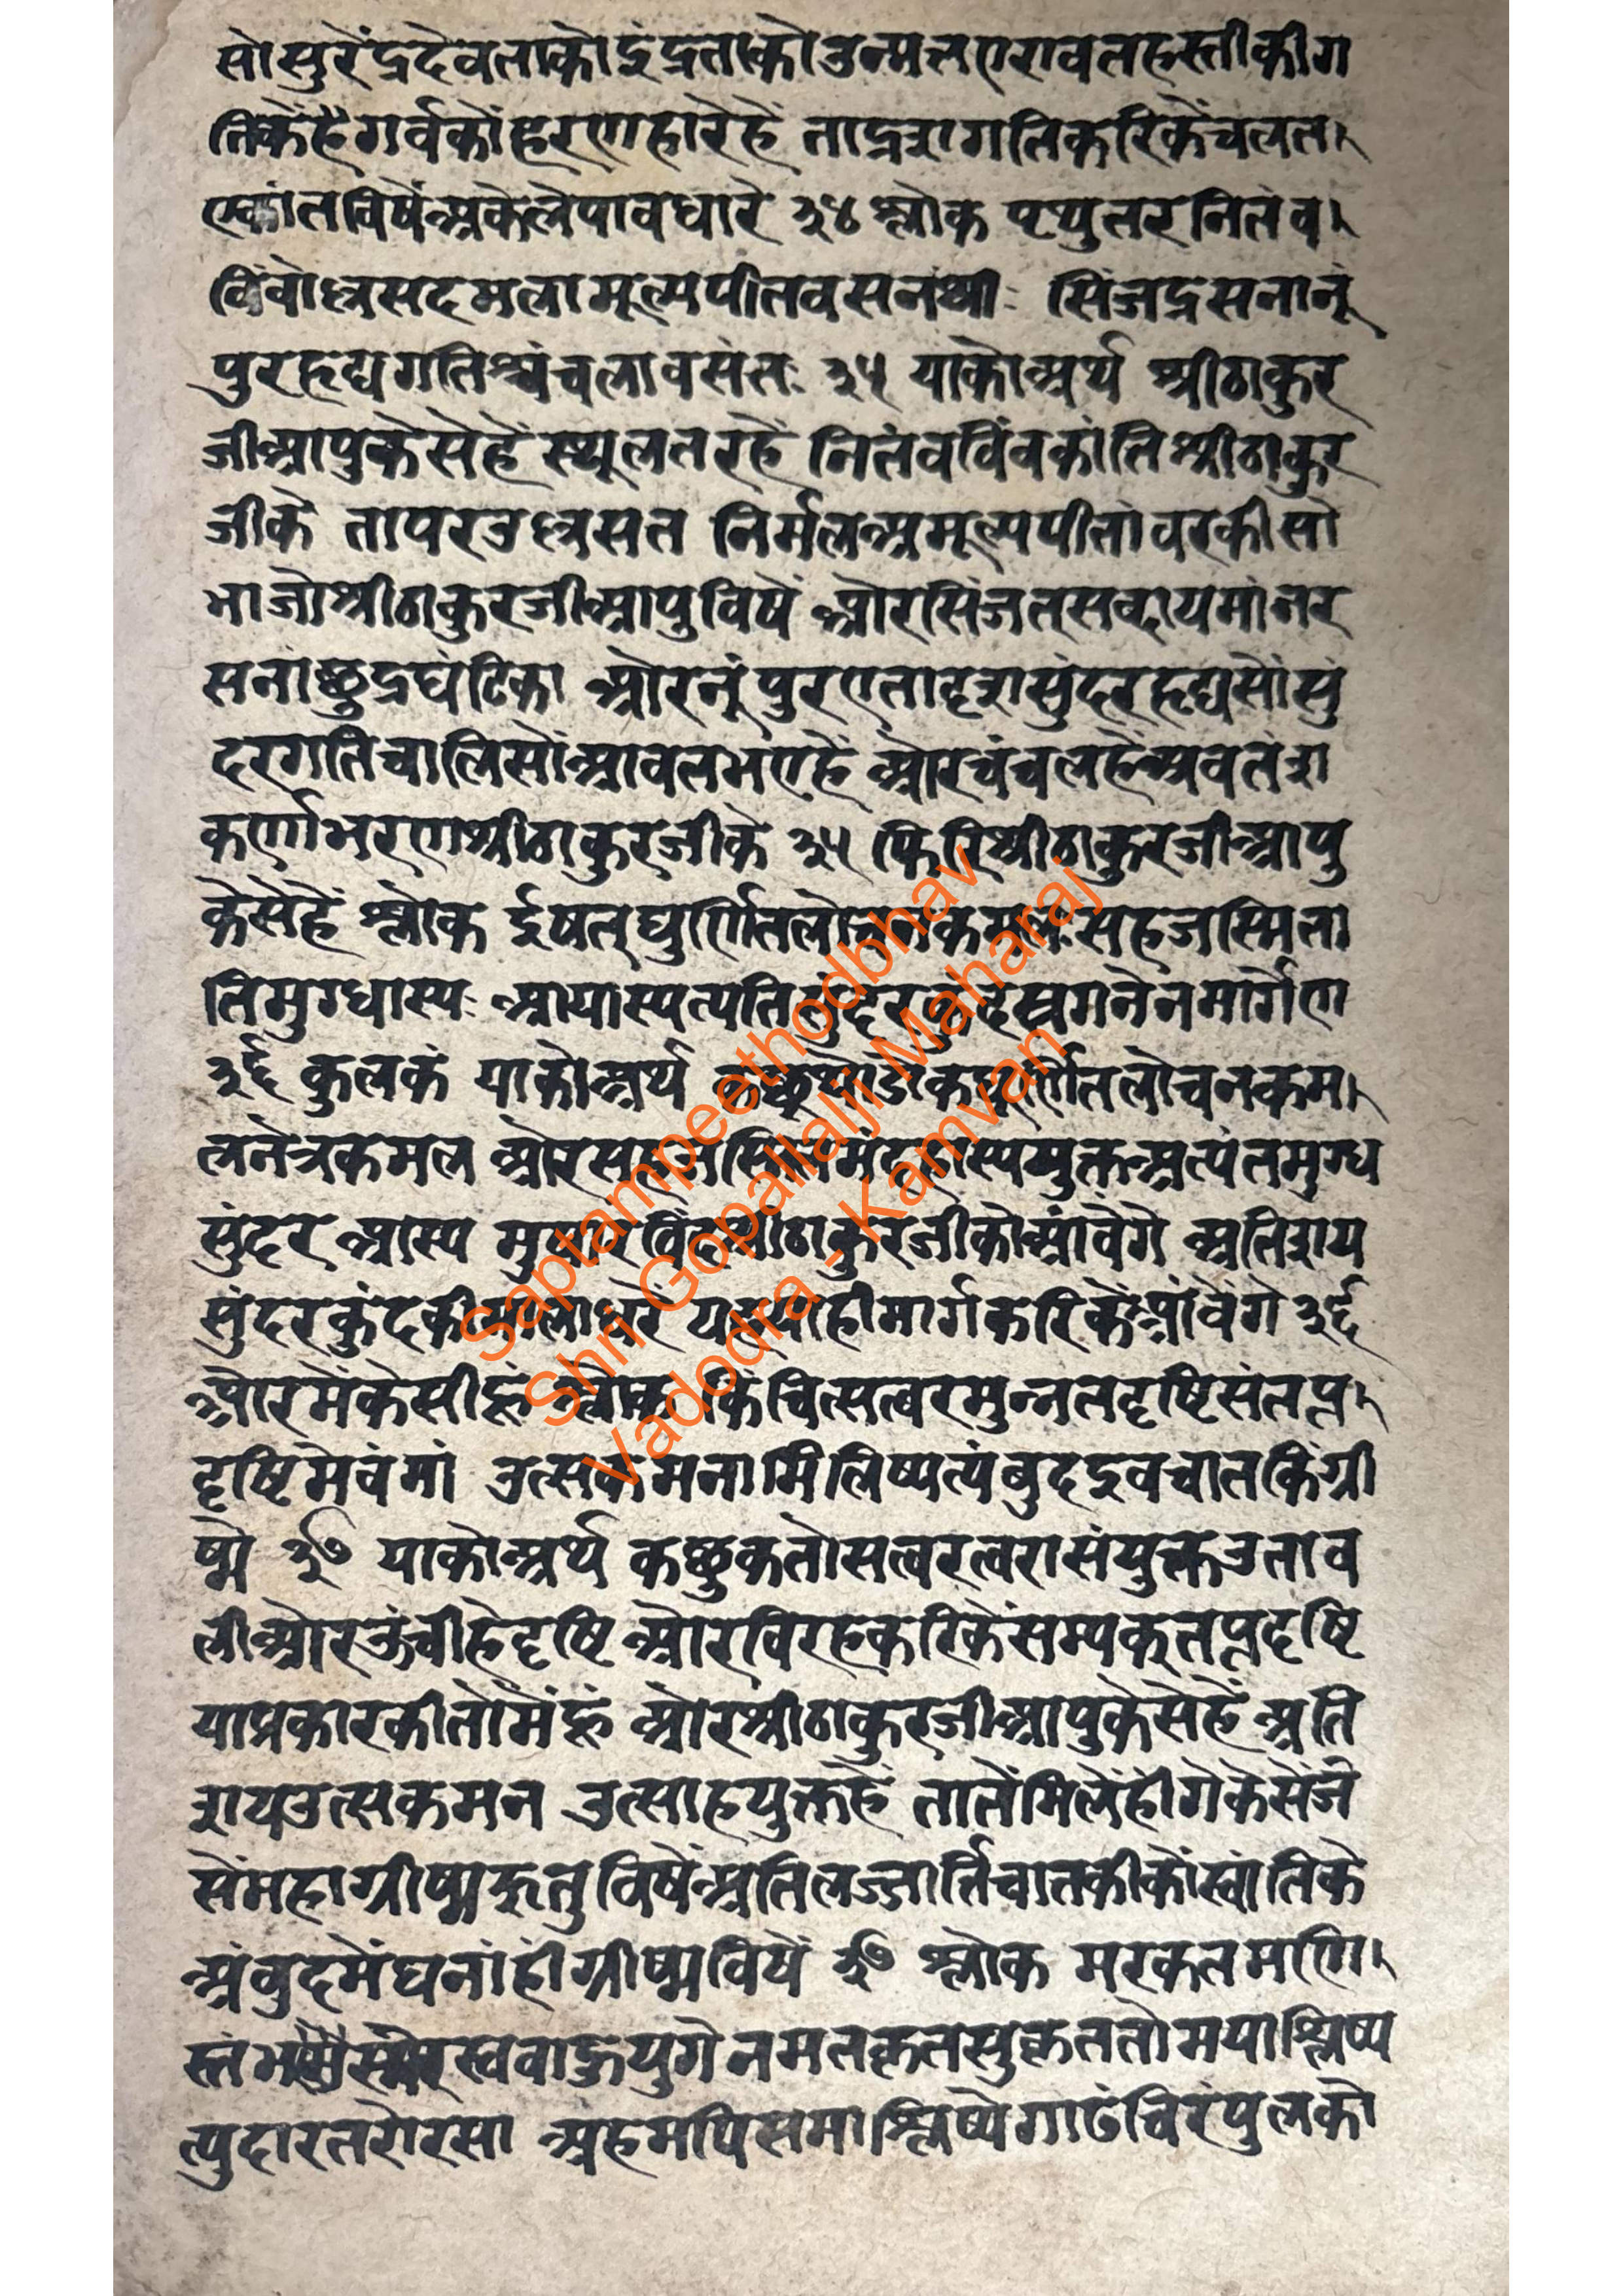 सोसुरेंद्रदेवताकोइंद्रताकोउन्मत्तएरावतहस्तीकीग
तिकेंहैगर्वकोंहरणहारेहें ताद्रशगतिकरिकेंचलत
एकांतविषेंअकेलेपावधारे ३४ श्लोक पृथुतरनितंब
बिंबोल्लसदमलामूल्यपीतवसनश्रीः सिंजद्रसनानूं
पुरहृद्यगतिश्चंचलावसंतः ३५ याकोअर्थ श्रीठाकुर
जीआपुकेसेहें स्थूलतरहें नितंबबिंबकांतिश्रीठाकुर
जीके तापरउल्लसत निर्मलअमूल्यपीतांबरकीसो
भाजोश्रीठाकुरजीआपुविषें औरसिंजत्सब्दायमांनर
सनाछुद्रघंटिका औरनूंपुरएतादृशसुंदरहृद्यसोंसुं
दरगतिचालिसोंआवतभएहें औरचंचलहेंअवतंश
कर्णाभरणश्रीठाकुरजीके ३५ फिरिश्रीठाकुरजीआपु
केसेहें श्लोक ईषत्घुर्णितलोचनकमलःसहजस्मिता
तिमुग्धास्यः आयास्यत्यतिसुंदरकुंदस्रगनेनमार्गेण
३६ कुलकं याकोअर्थ कछुथोडोकघूर्णितलोचनकम
लनेत्रकमल औरसहजस्मितमंदहास्ययुक्तअत्यंतमुग्ध
सुंदर आस्य मुखारविंदश्रीठाकुरजीकोआंवेंगे अतिशय
सुंदरकुंदकीमालाधरें यहयाहीमार्गकरिकेंआंवेंगे ३६
औरमेंकेसीहूं श्लोक किंचित्सत्वरमुन्नतदृष्टिसंतप्त
दृष्टिमेवंमां उत्सकमनामिलिष्यत्यंबुदइवचातकिंग्री
ष्मे ३७ याकोअर्थ कछुकतोसत्वरत्वरासंयुक्तउताव
लीऔरऊंचीहेदृष्टि औरविरहकरिकेंसम्यकूतप्तदृष्टि
याप्रकारकीतोंमेंहूं औरश्रीठाकुरजीआपुकेसेहें अति
शयउत्सकमन उत्साहयुक्तहें तातेंमिलेंहींगेकेसेंजे
सेंमहाग्रीष्मऋतुविषेंअतिलज्जार्तिचातकीकोंस्वांतिके
अंबुदमेंघनांहीग्रीष्मविषें ३७ श्लोक मरकतमणि
स्तंभ स्वबाहुयुगेनमतकृतसुकृततोमयाश्लिष्य
त्युदारतरोरसा अहमपिसमाश्लिष्येगाढंचिरंपुलको